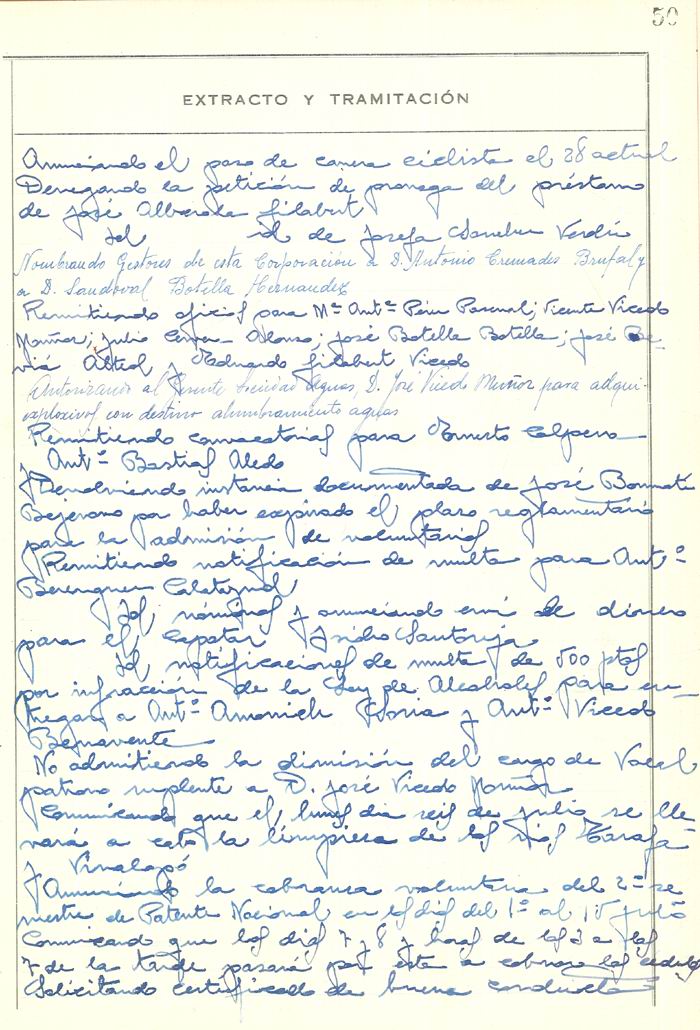 50
EXTRACTO Y TRAMITACIÓN
Anunciando el paso de carrera ciclista el 28 actual
Denegando la petición de prorroga del préstamo
de José Alberola Gilabert
Id id de Josefa Sanchez Verdú
Nombrando Gestores de esta Corporación a D. Antonio Cremades Brufal y
a D. Sandoval Botella Hernandez
Remitiendo oficios para Mª Antª Pérez Pascual; Vicente Vicedo
Muñoz; Julio Cerver Alonso; José Botella Botella; José Be-
viá Altiol y Eduardo Gilabert Vicedo
Autorizando al Gerente Sociedad Aguas, D. José Vicedo Muñoz para adqui-
explosivos con destino alumbramiento aguas
Remitiendo convocatorias para Ernesto Calpena
y Antº Bastias Aledo
Devolviendo instancia documentada de José Bonmati
Bejerano por haber expirado el plazo reglamentario
para la admisión de voluntarios
Remitiendo notificación de multa para Antº
Berenguer Calatayud
Id nóminas y anunciando envi de dinero
para el Capataz Isidro Santonja
Id notificaciones de multa de 500 ptas
por infracción de la Ley de Alcoholes para en-
tregar a Antº Amorich Soria y Antº Vicedo
Benavente
No admitiendo la dimisión del cargo de Vocal
patrono suplente a D. José Vicedo Muñoz
Comunicando que el lunes dia seis de julio se lle-
vará a cabo la limpieza de los rios Tarafa
y Vinalopó
Anunciando la cobranza voluntaria del 2º se-
mestre de Patente Nacional en los dias del 1º al 15 julio
Comunicando que los dias 7 y 8 y horas de las 3 a las
7 de la tarde pasará por esta a cobrar las cedulas
Solicitando certificado de buena conducta